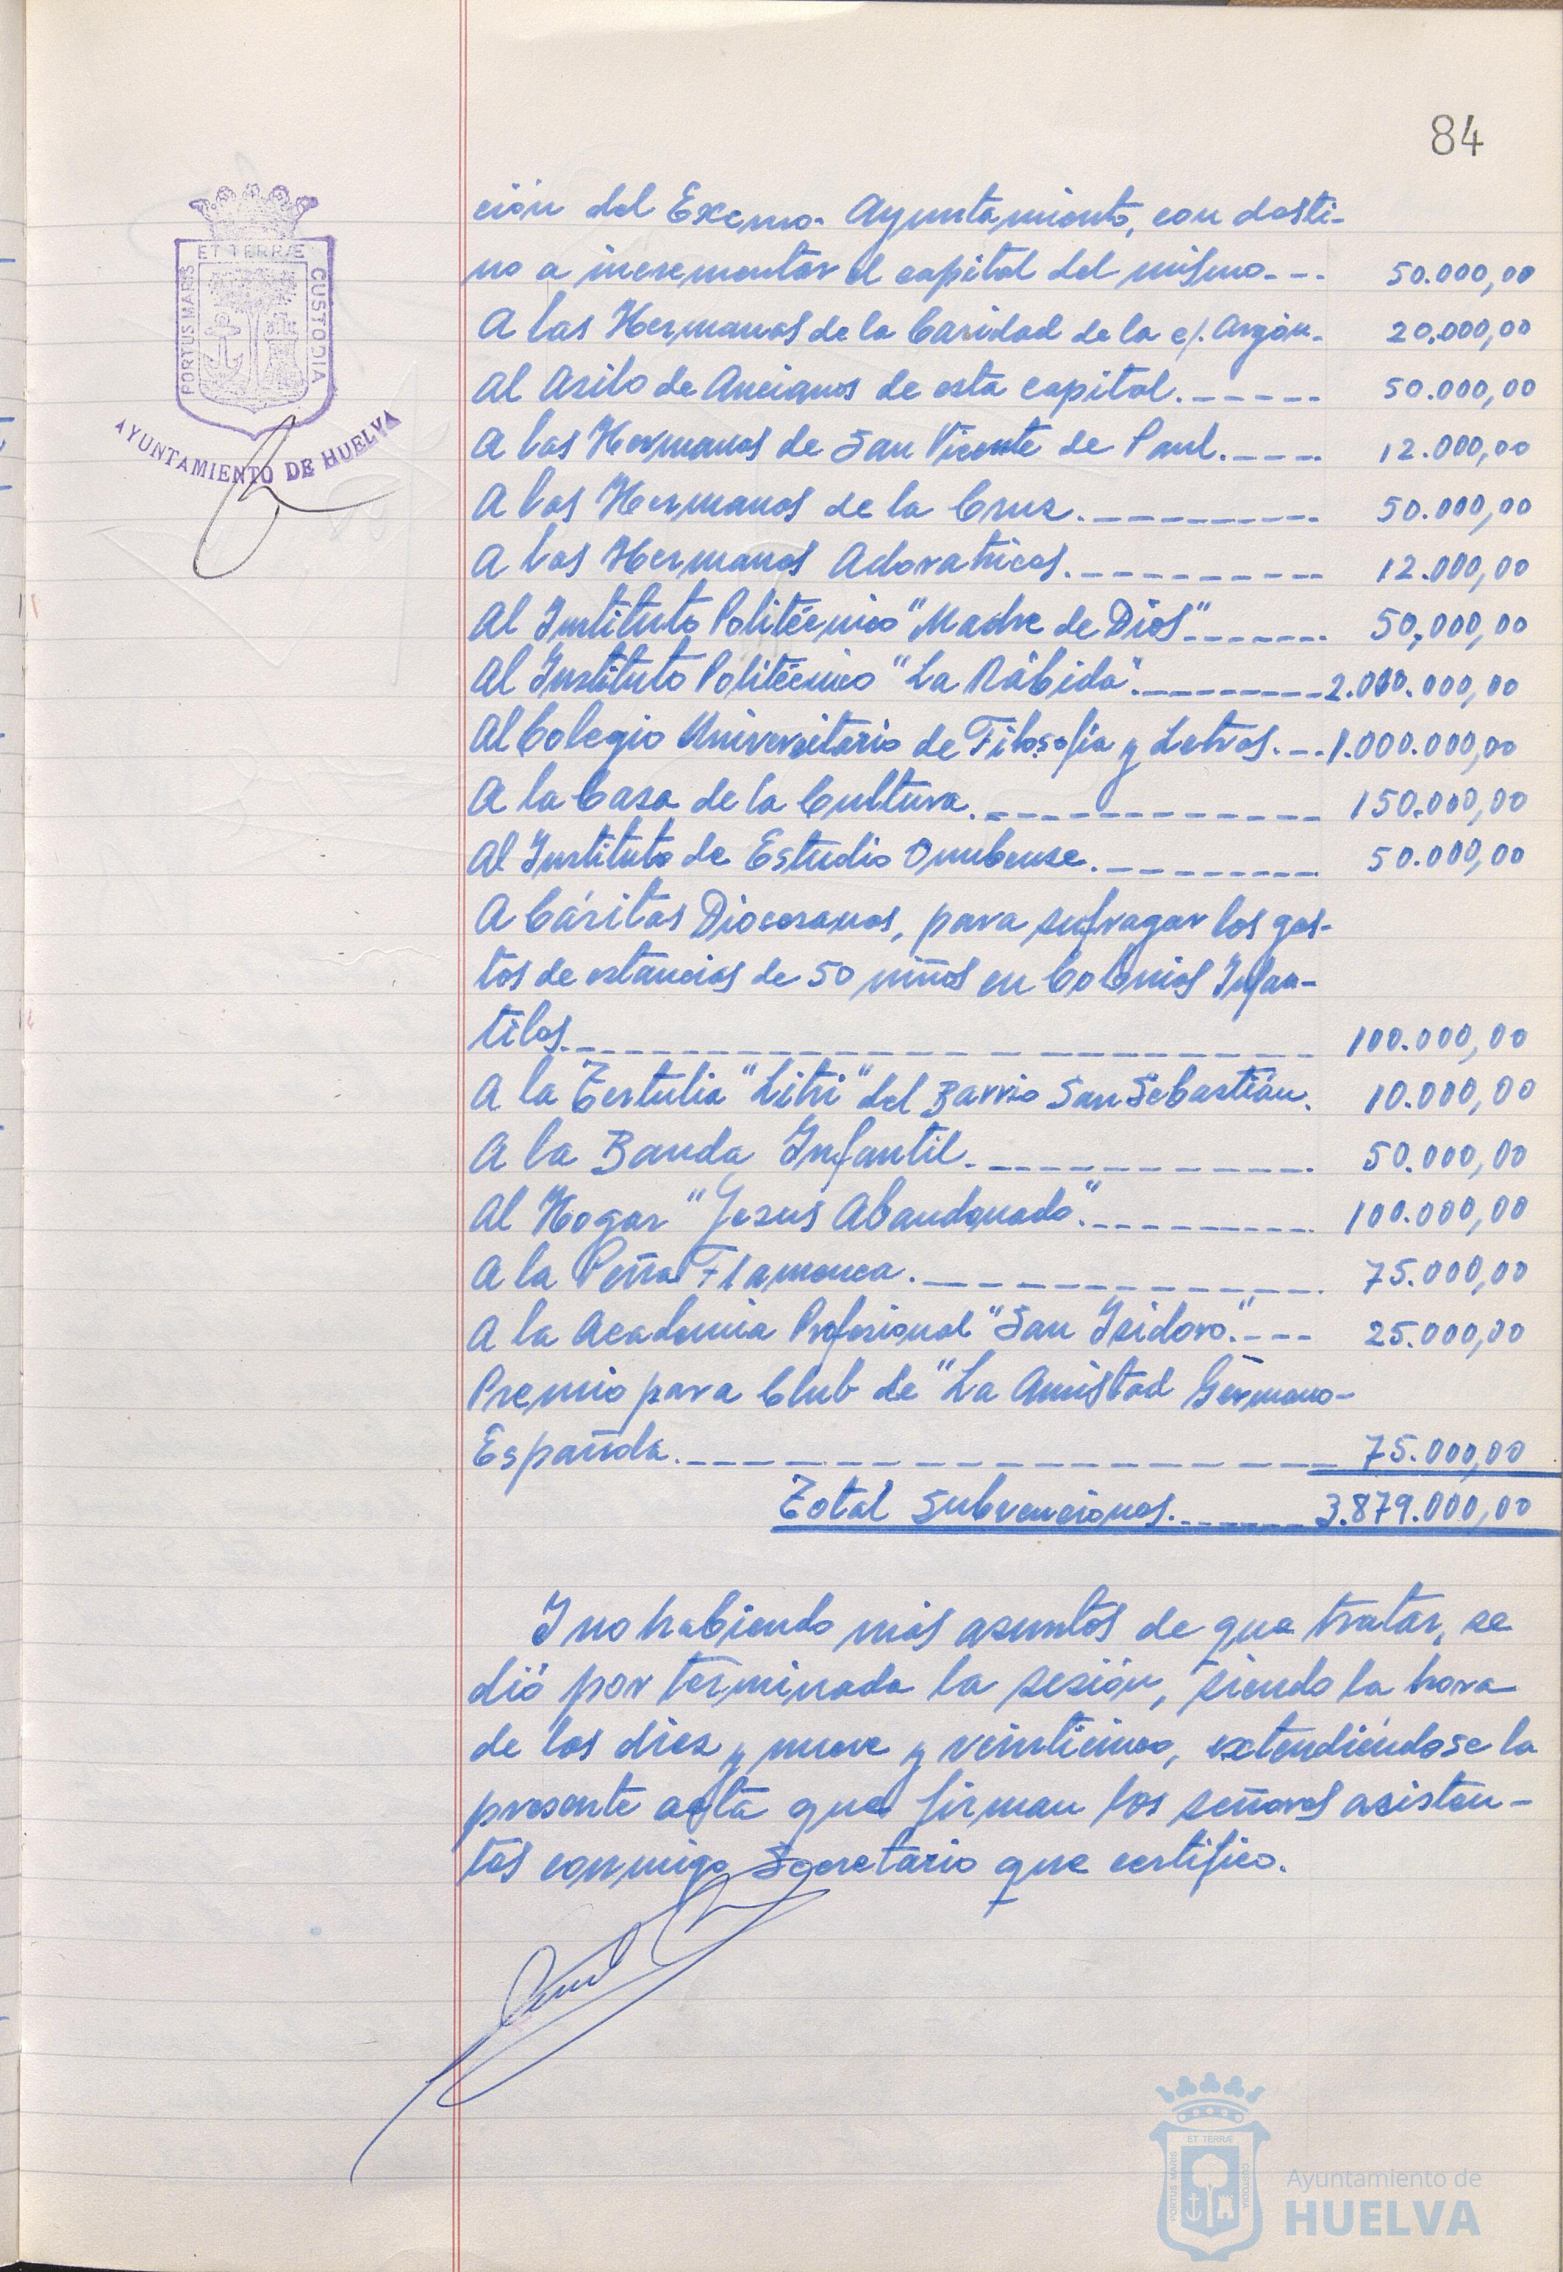 84
ET TERRÆ
PORTUS MARIS
CUSTODIA
AYUNTAMIENTO DE HUELVA
ción del Excmo. Ayuntamiento, con desti-
no a incrementar el capital del mismo.-- 50.000,00
A las Hermanas de la Caridad de la c/. Argón.- 20.000,00
Al Asilo de Ancianos de esta capital.------ 50.000,00
A las Hermanas de San Vicente de Paul.---- 12.000,00
A las Hermanas de la Cruz.--------- 50.000,00
A las Hermanas Adoratrices.---------- 12.000,00
Al Instituto Politécnico "Madre de Dios"------- 50.000,00
Al Instituto Politécnico "La Rábida".--------- 2.000.000,00
Al Colegio Universitario de Filosofía y Letras.-- 1.000.000,00
A la Casa de la Cultura.------------ 150.000,00
Al Instituto de Estudio Onubense.--------- 50.000,00
A Cáritas Diocesanas, para sufragar los gas-
tos de estancias de 50 niños en Colonias Infan-
tiles.-------------------- 100.000,00
A la Tertulia "Litri" del Barrio San Sebastián. 10.000,00
A la Banda Infantil.------------ 50.000,00
Al Hogar "Jesus Abandonado".--------- 100.000,00
A la Peña Flamenca.------------ 75.000,00
A la Academia Profesional "San Isidoro".--- 25.000,00
Premio para Club de "La Amistad Germano-
Española.----------------- 75.000,00
Total Subvenciones.------- 3.879.000,00
Y no habiendo más asuntos de que tratar, se
dió por terminada la sesión, siendo la hora
de las diez y nueve y veinticinco, extendiéndose la
presente acta que firman los señores asisten-
tes conmigo Secretario que certifico.
ET TERRÆ
PORTUS MARIS
CUSTODIA
Ayuntamiento de
HUELVA